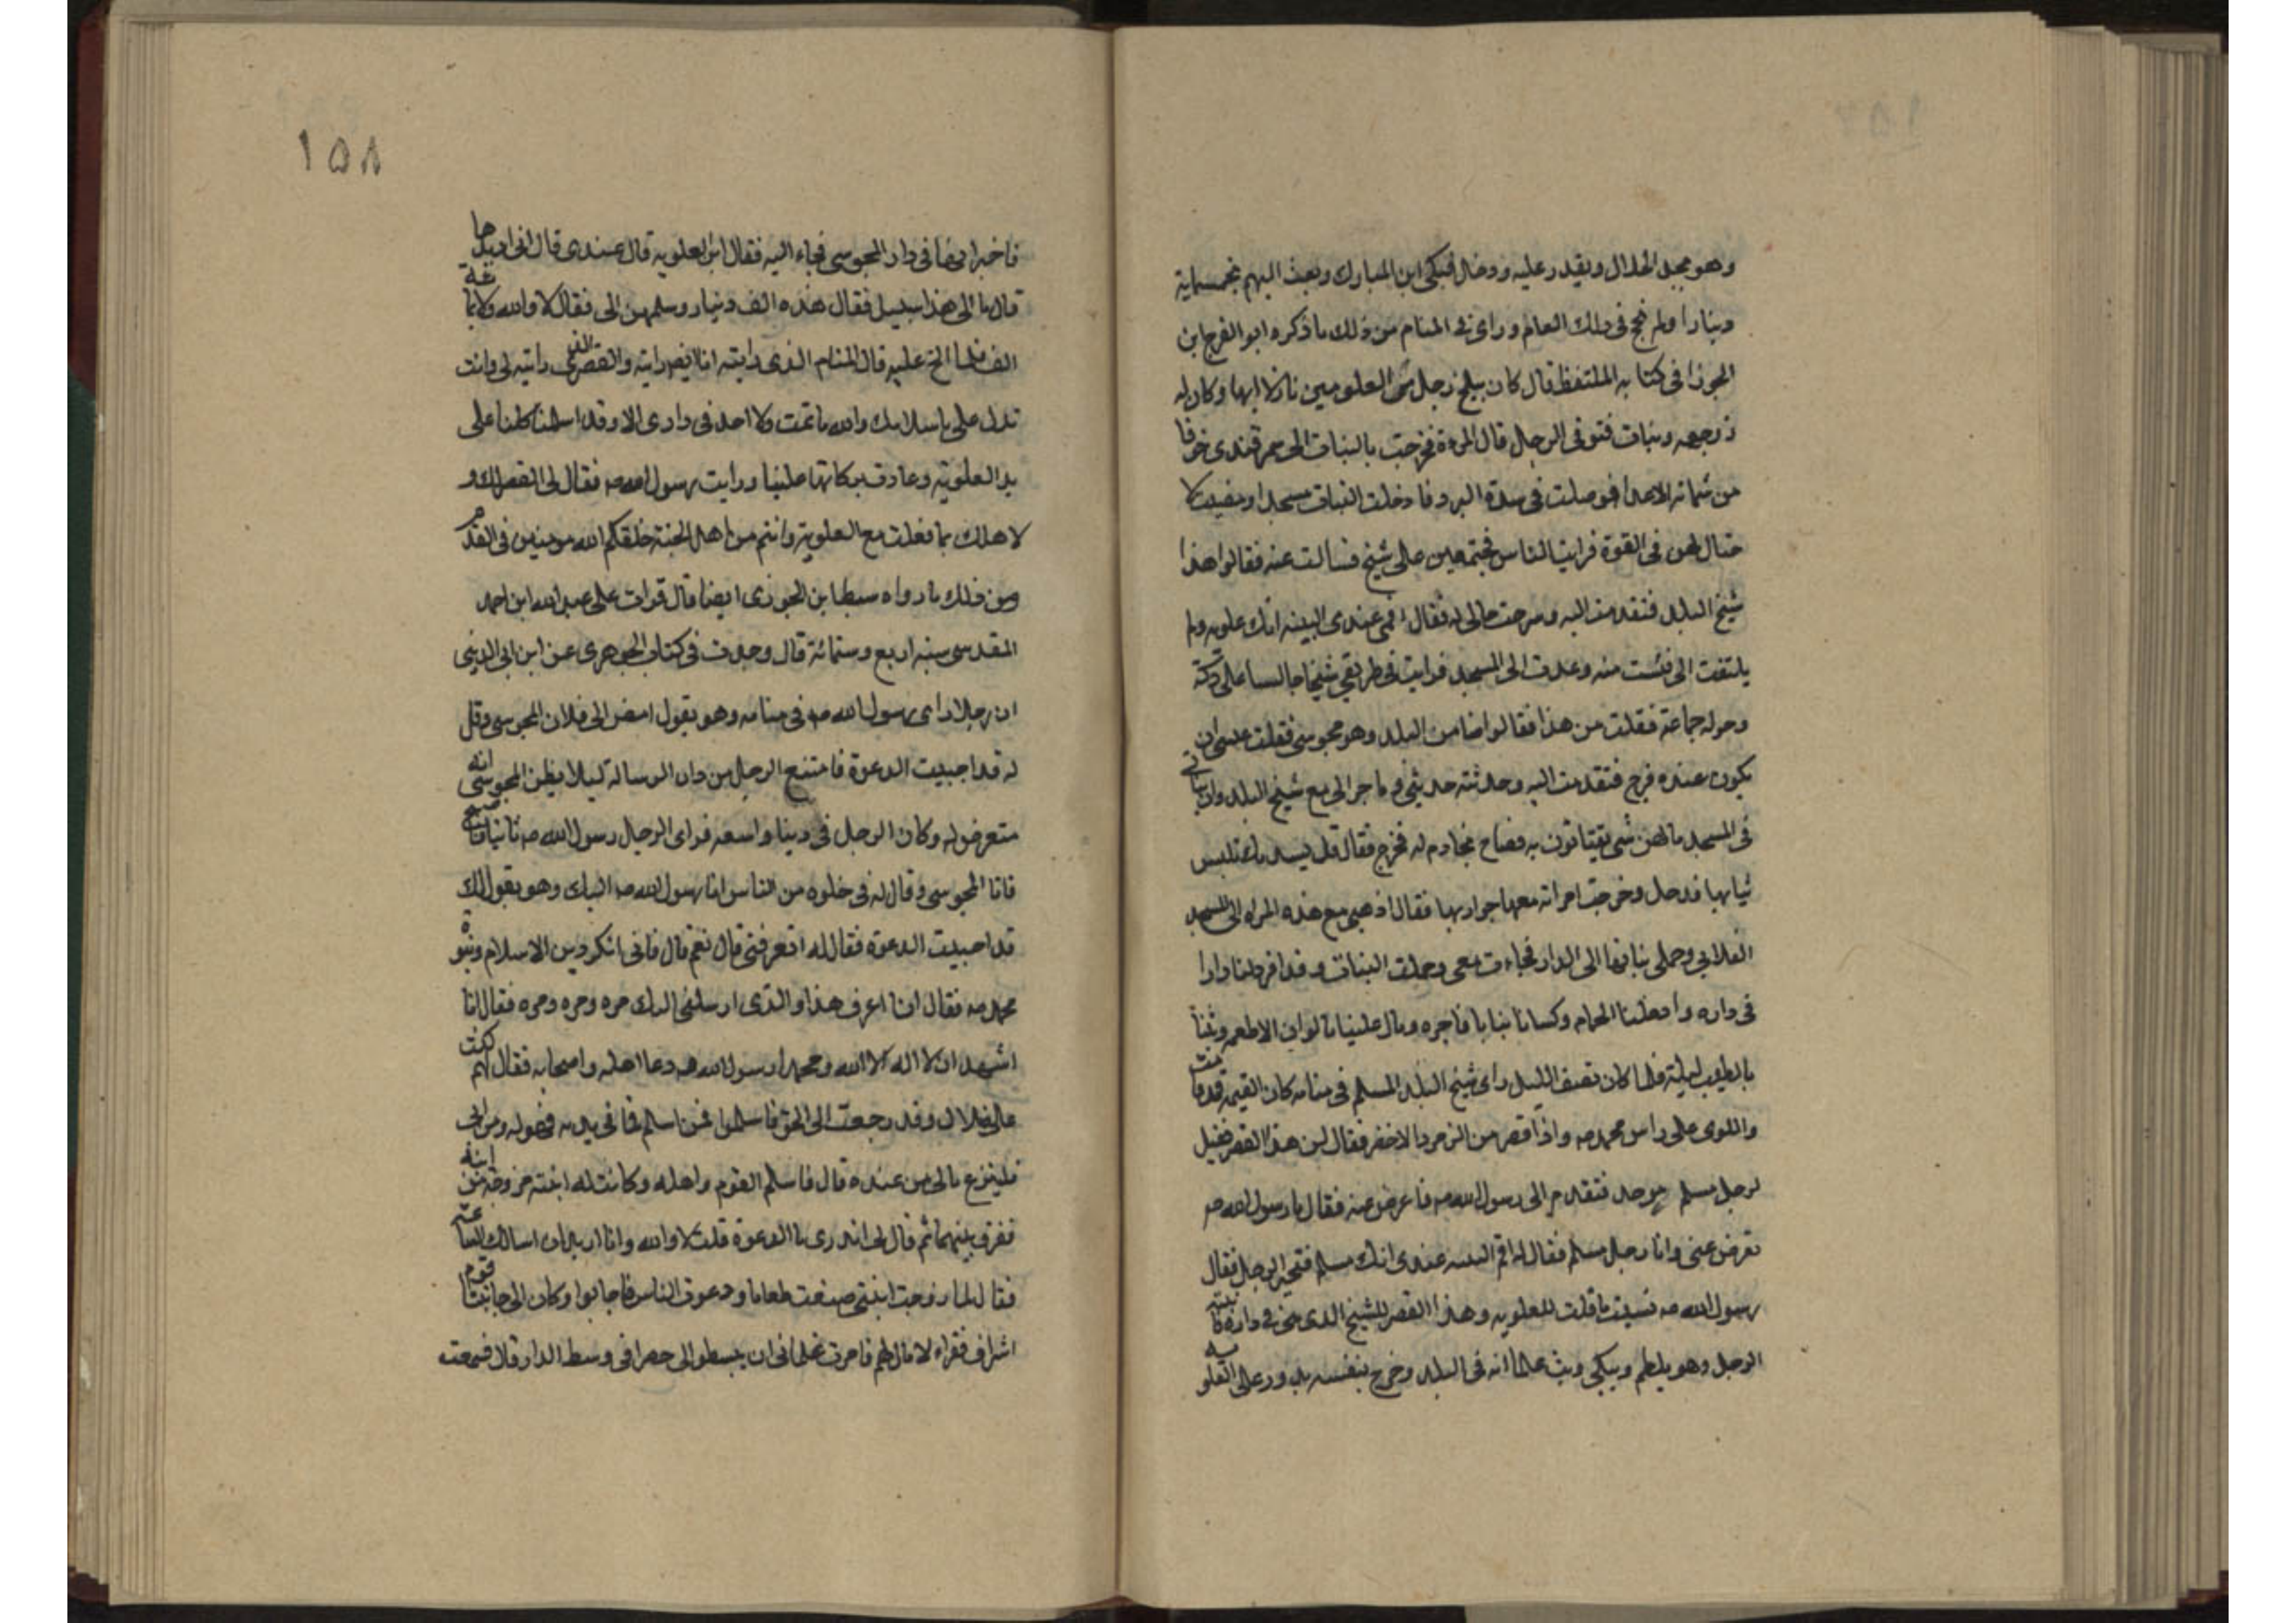 وهو يجد الحلال ويقدر عليه ودخل فبكى ابن المبارك وبعث اليهم بخمسماية
دينارا ولم يحج في ذلك العام وراى في المنام من ذلك ما ذكره ابو الفرج ابن
الجوزا في كتابه الملتقط قال كان ببلخ رجل من العلويين نازلا بها وكان له
زوجه وبنات فتوفى الرجل قال المرءة فخرجت بالبنات الى سمرقندى خوفا
من شماته الاعدا فوصلت في شدة البرد فادخلت البنات مسجدا ومضيت لا
حتال لهن في القوة فرايت الناس مجتمعين على شيخ فسالت عنه فقالوا هذا
شيخ البلد فتقدمت اليه وشرحت حالى له فقال اقمى عندى البينه انك علويه ولم
يلتفت الى فئست منه وعدت الى المسجد فرايت في طريقي شيخا جالسا على دكة
وحوله جماعة فقلت من هذا فقالوا ضامن البلد وهو مجوسى فقلت عسى ان
يكون عنده فرج فتقدمت اليه وحدثته حديثى وما جرالى مع شيخ البلد وان بناتى
في المسجد ما لهن شى يقتاتون به فصاح بخادم له فخرج فقال قل لسيدتك تلبس
ثيابها فدخل وخرجت امراته معها جواريها فقال اذهبى مع هذه المراه الى المسجد
الفلانى وحملى بناتها الى الدار فجاءت معى وحملت البنات وقد افرد لنا دارا
في داره وادخلنا الحمام وكسانا ثيابا فاخره ومال علينا بالوان الاطعمه وبتنا
باطيب ليلة فلما كان نصف الليل راى شيخ البلد المسلم في منامه كان القيمه قد قامت
واللوى على راس محمد صه واذا قصر من الزمرد الاخضر فقال لمن هذا القصر فقيل
لرجل مسلم موحد فتقدم الى رسول الله صه فاعرض عنه فقال يا رسول الله صه
تعرض عنى وانا رجل مسلم فقال له اقم البينه عندى انك مسلم فتحير الرجل فقال
رسول الله صه نسيت ما قلت للعلويه وهذا القصر للشيخ الذى هى في داره فانتبه
الرجل وهو يلطم ويبكى وبث غلمانه في البلد وخرج بنفسه يدور على العلويه
١٥٨
فاخبر انها في دار المجوسى فجاء اليه فقال اين العلويه قال عندى قال انى اريدها
قال ما الى هذا سبيل فقال هذه الف دينار وسلمهن الى فقال لا والله ولا بمائة
الف فلما الح عليه قال المنام الذى رايته انا ايضا رايته والقصر الذى رايته لى وانت
تدل على باسلامك والله ما نمت ولا احد في دارى الا وقد اسلمنا كلنا على
يد العلويه وعادت بركاتها علينا ورايت رسول الله صه فقال لى القصر لك و
لاهلك بما فعلت مع العلويه وانتم من اهل الجنة خلقكم الله مومنين في القدم
ومن ذلك ما رواه سبط ابن الجوزى ايضا قال قرات على عبد الله ابن احمد
المقدسى سنه اربع وستمائة قال وجدت في كتاب الجوهرى عن ابن ابى الدينى
ان رجلا راى رسول الله صه في منامه وهو يقول امض الى فلان المجوسى وقل
له قد اجيبت الدعوة فامتنع الرجل من دان الرسالة ليلا يظن المجوسى انه
متعرض له وكان الرجل في دينا واسعه فراى الرجل رسول الله صه ثانيا
فاتا المجوسى وقال له في خلوه من الناس انا رسول الله صه اليك وهو يقول لك
قد اجيبت الدعوة فقال له اتعرفنى قال نعم قال فانى انكر دين الاسلام ونبوة
محمد صه فقال انا اعرف هذا والذى ارسلنى اليك مره ومره ومره فقال انا
اشهد ان لا اله الا الله ومحمدا رسول الله صه ودعا اهله واصحابه فقال لهم كنت
على ضلال وقد رجعت الى الحق فاسلموا فمن اسلم فما في يديه فهو له ومن ابى
فلينزع مالى من عنده قال فاسلم القوم واهله وكانت له ابنته مزوجه من ابنه
ففرق بينهما ثم قال لى اتدرى ما الدعوة قلت لا والله وانا اريد ان اسالك الساعه
فقال لما زوجت ابنتى صنعت طعاما ودعوت الناس فاجابوا وكان الى جانبنا قوم
اشراف فقراء لا مال لهم فامرت غلمانى ان يبسطوا لى حصرا في وسط الدار قال فسمعت